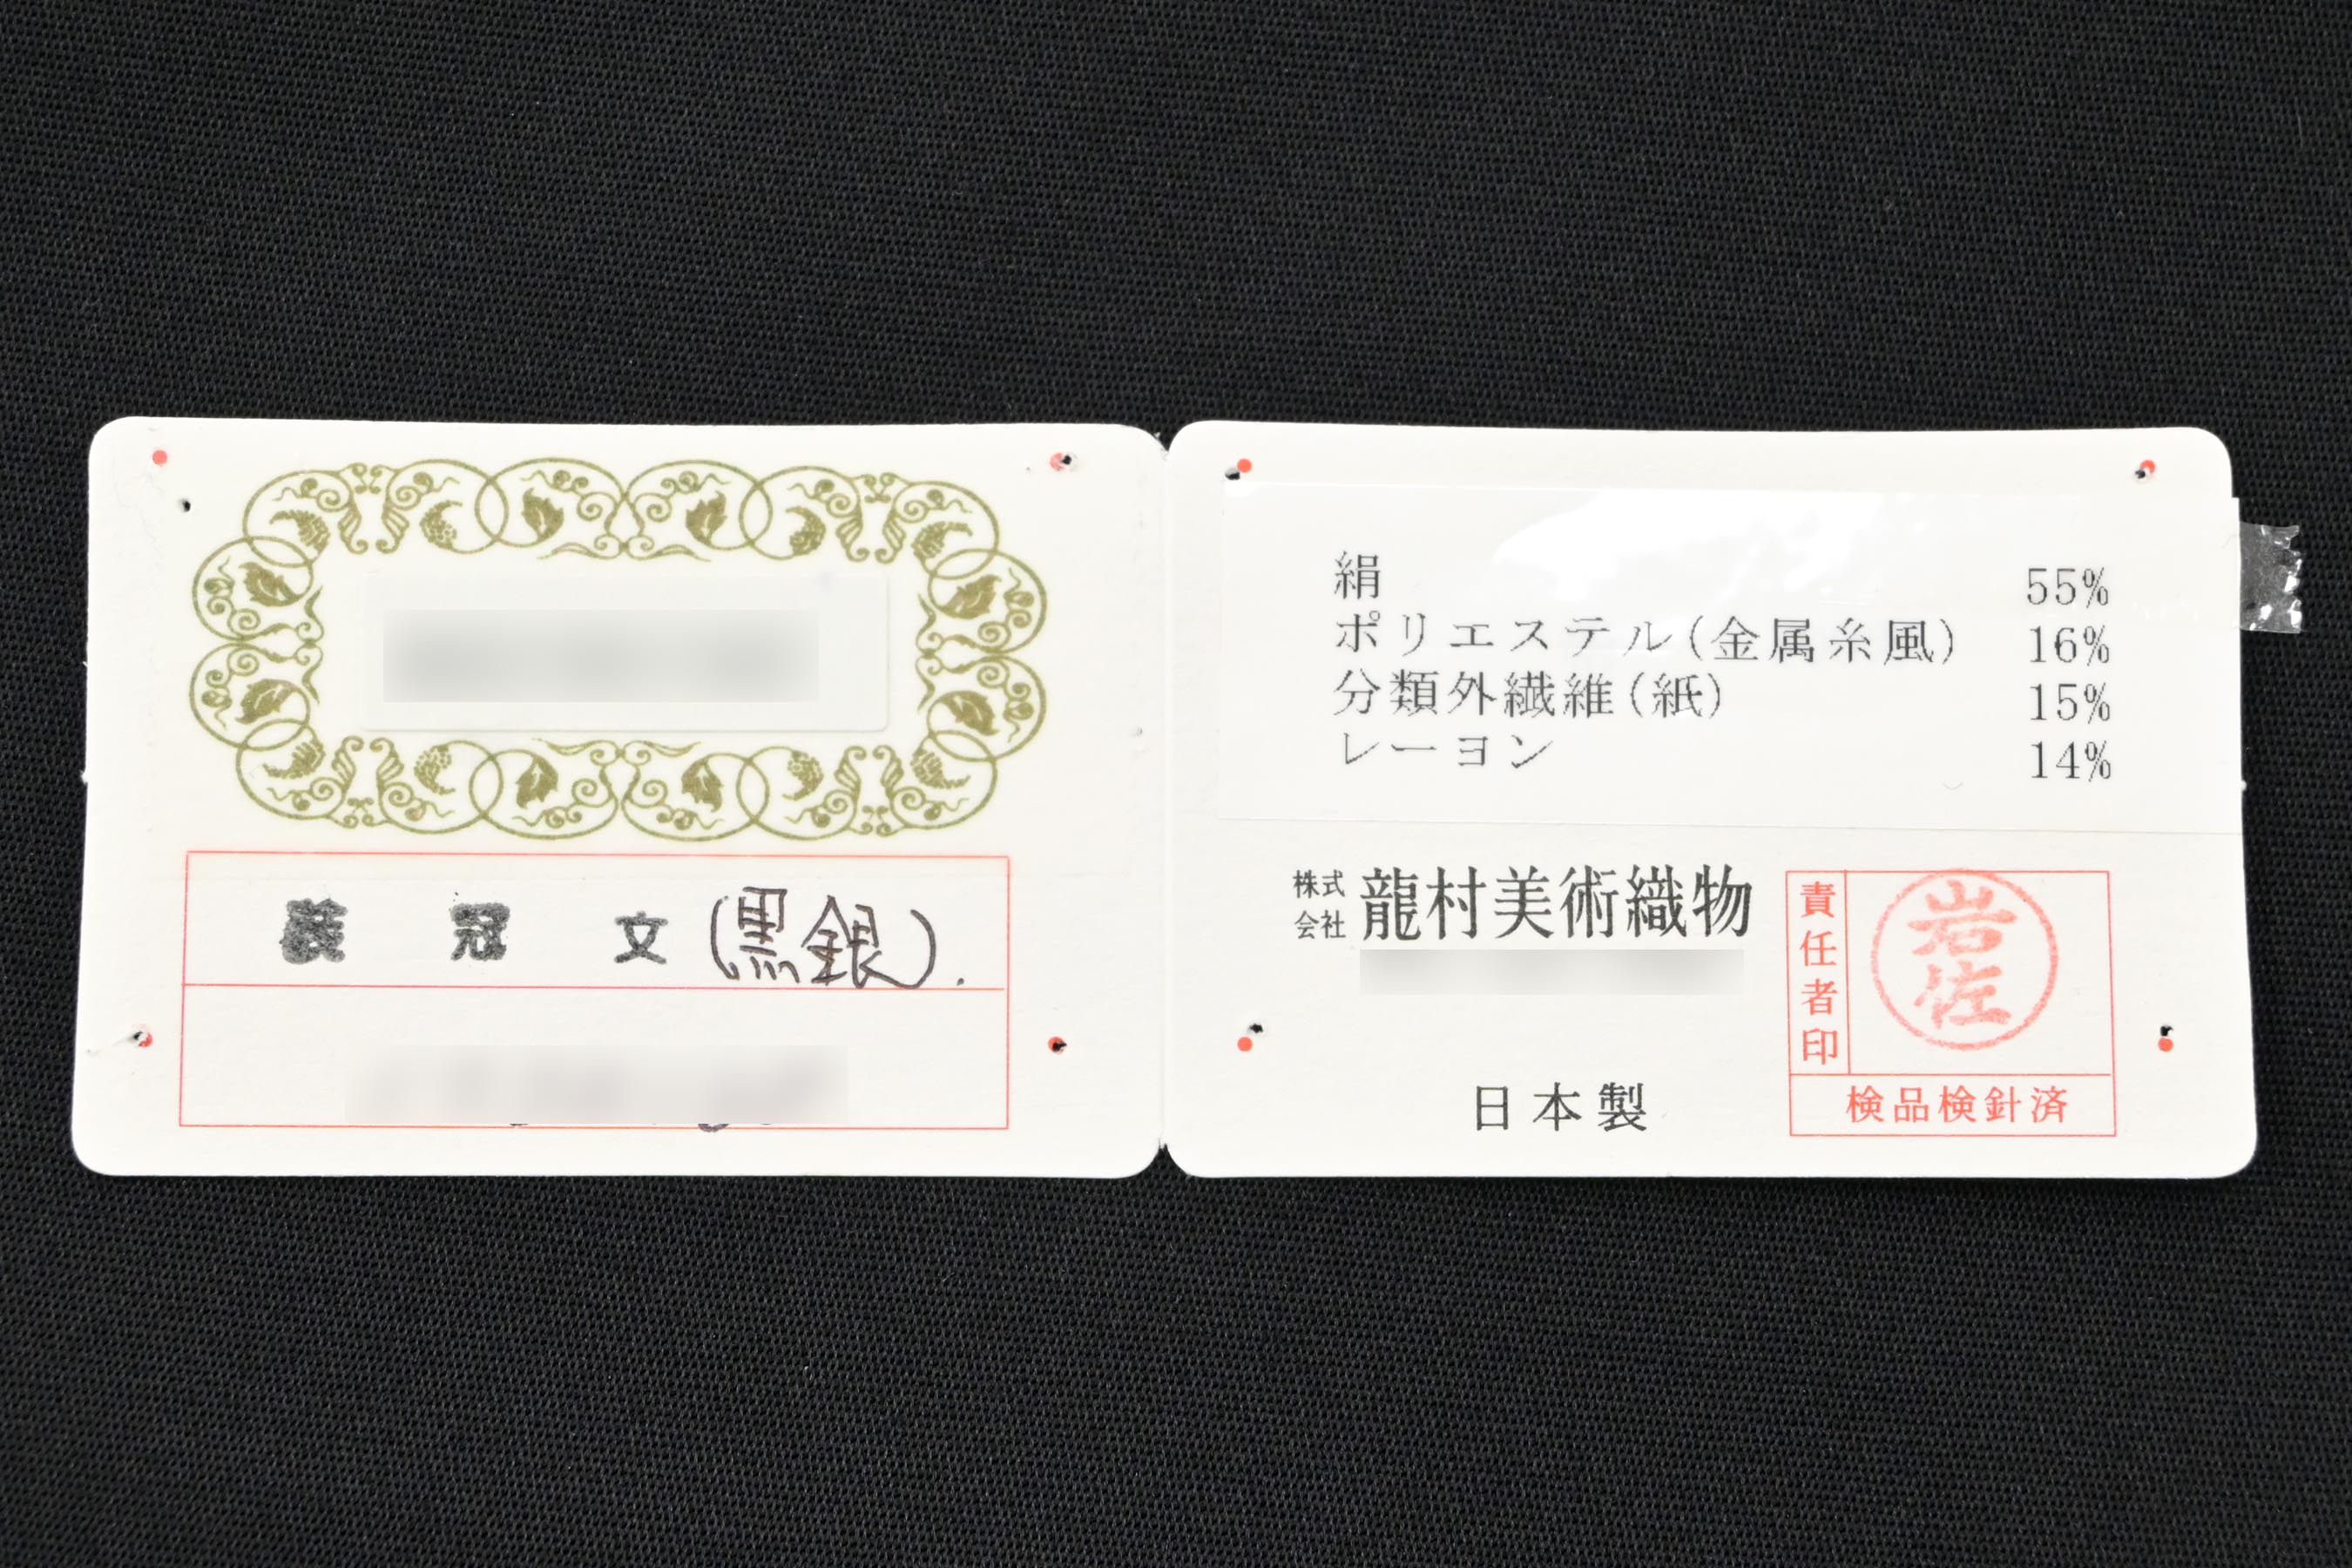 装冠文(黒銀).
絹 55%
ポリエステル(金属糸風) 16%
分類外繊維(紙) 15%
レーヨン 14%
株式会社 龍村美術織物
日本製
責任者印
岩佐
検品検針済